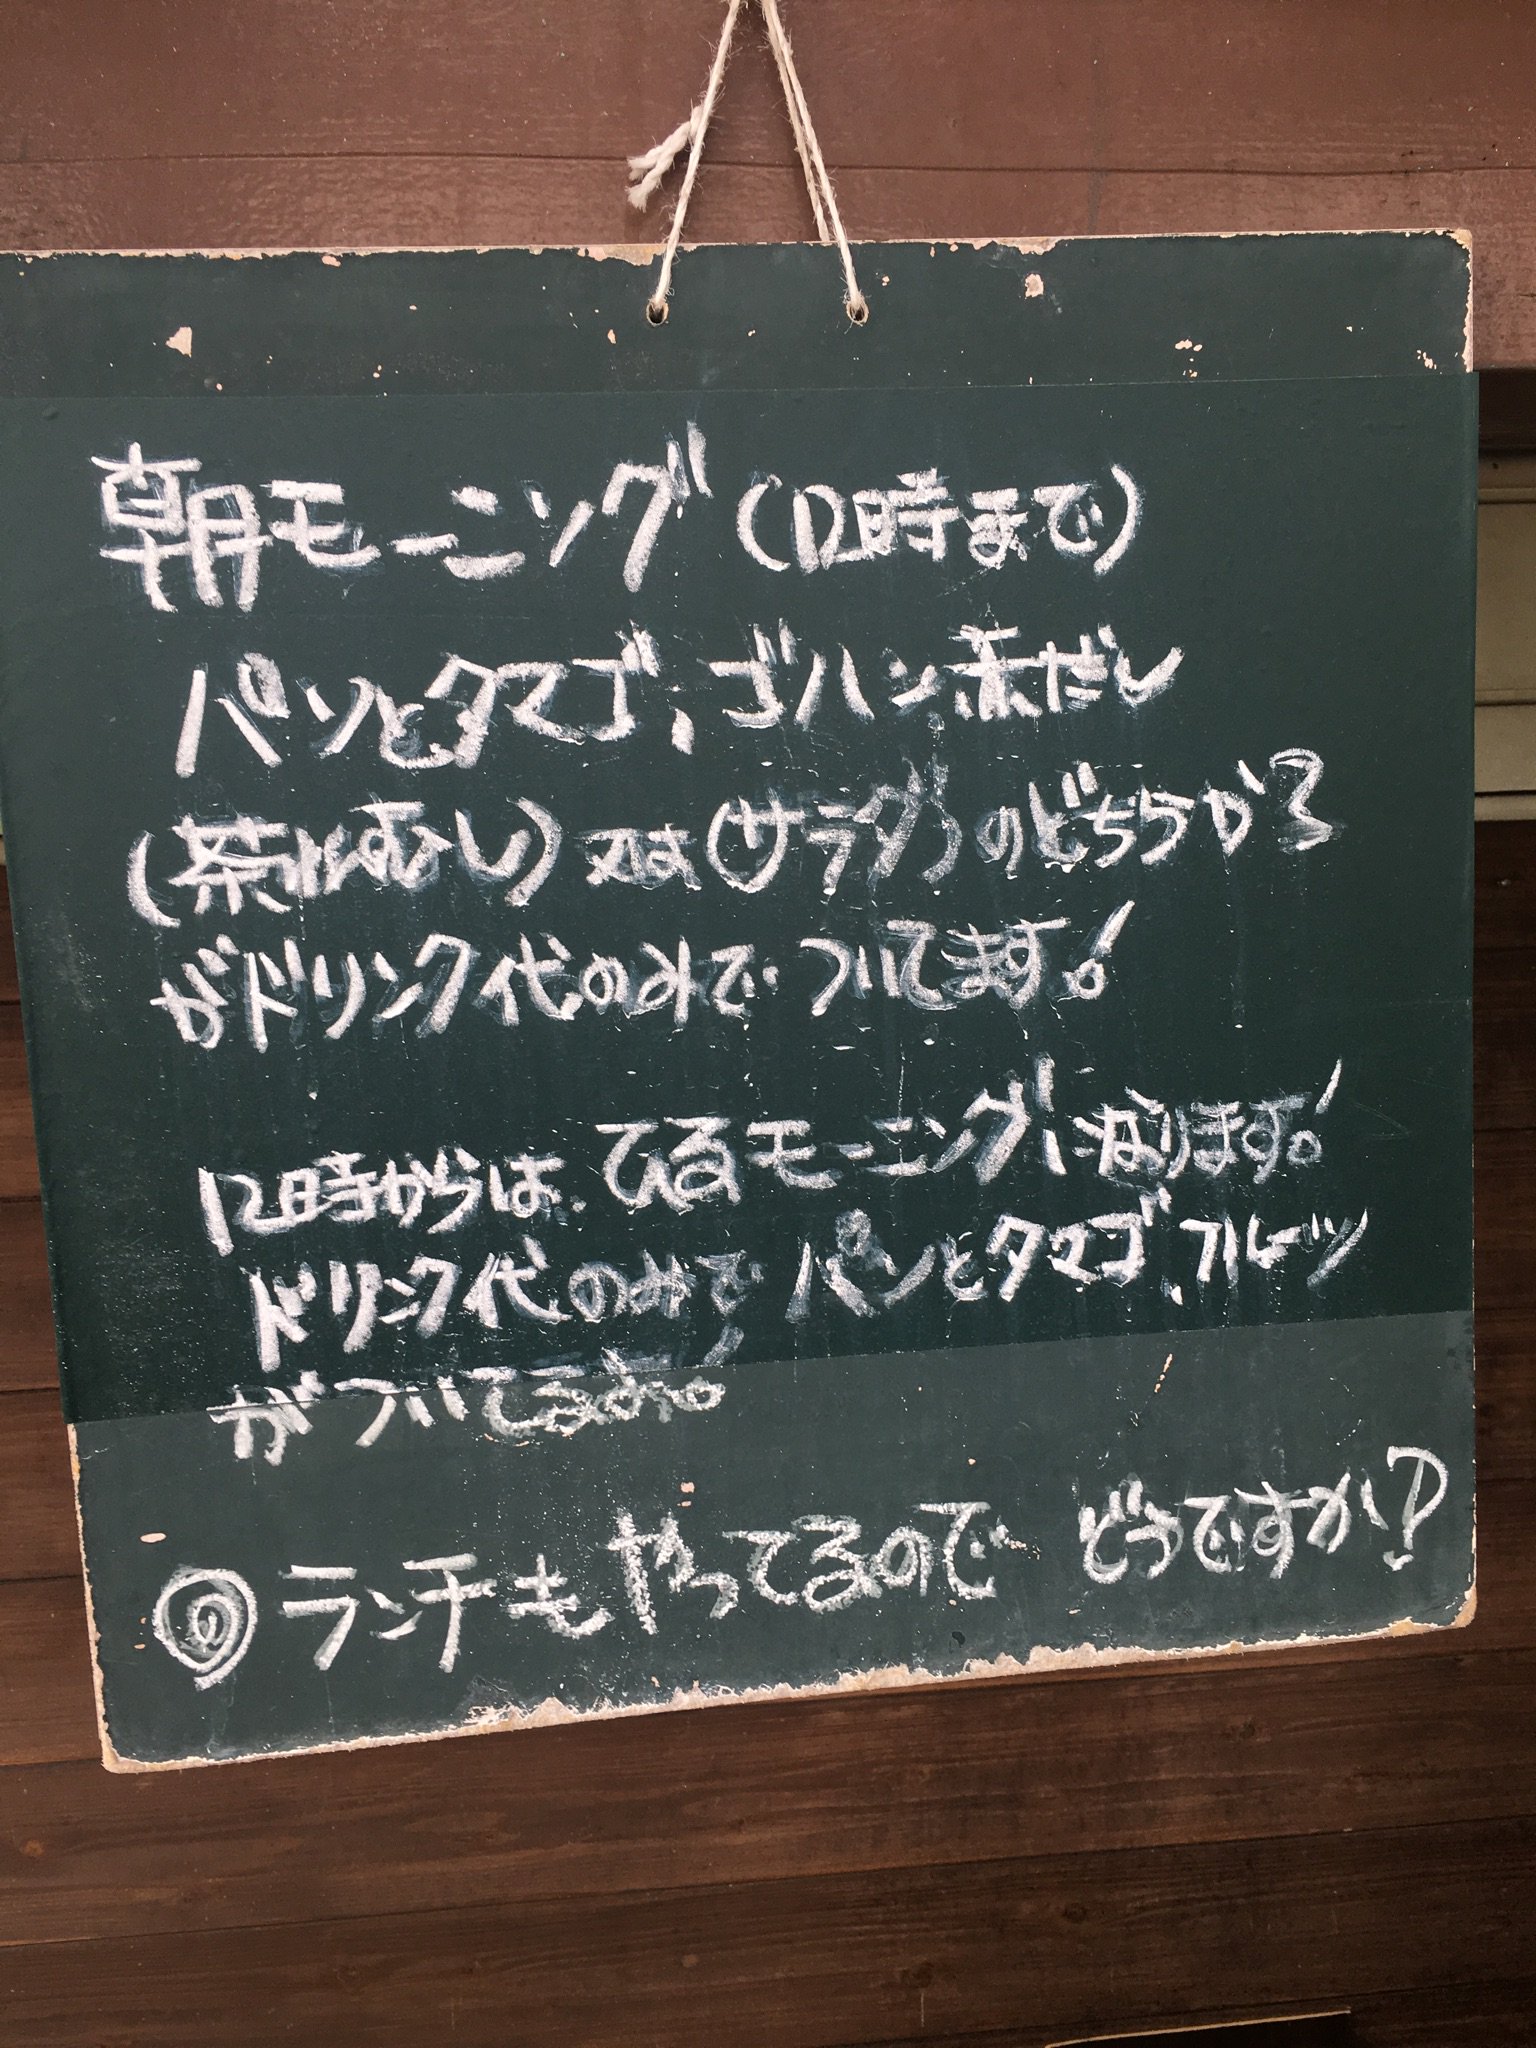 朝モーニング(12時まで)
パンとタマゴ、ゴハン赤だし
(茶碗むし)又は(サラダ)のどちらか
がドリンク代のみでついてます!
12時からは、ひるモーニングになります!
ドリンク代のみでパンとタマゴ、フルーツ
がついてるよ!
◎ランチもやってるのでどうですか?